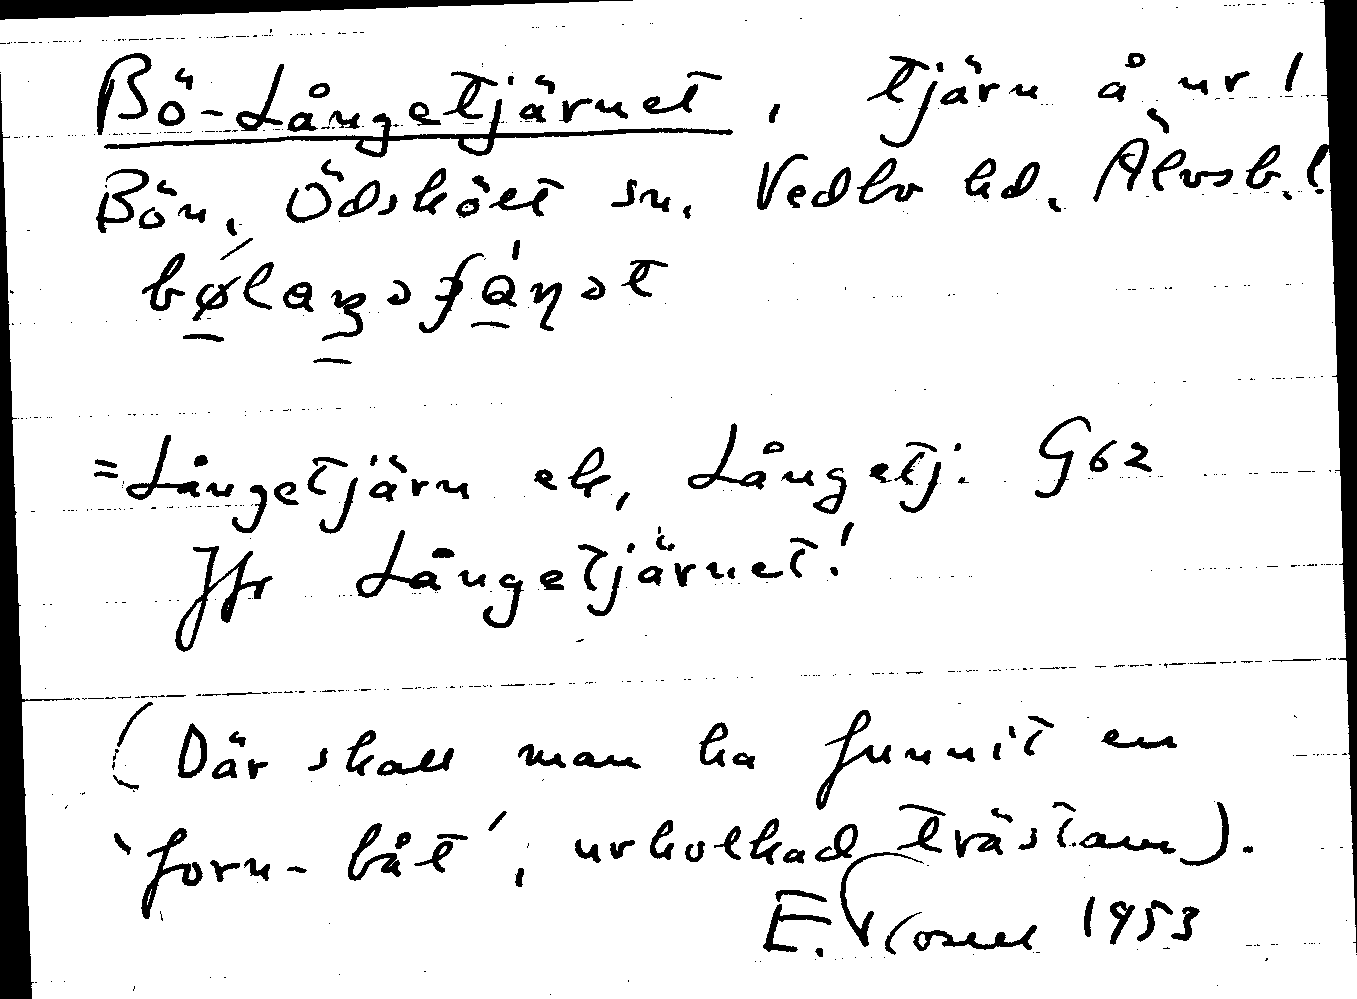 Bö-Långetjärnet, tjärn å nr 1
Bön, Ödskölt sn. Vedbo hd. Älvsb. l.
= Långetjärn ek, Långetj. G62
Jfr Långetjärnet!
(Där skall man ha funnit en
'forn-båt', urholkad trästam).
E. 1953